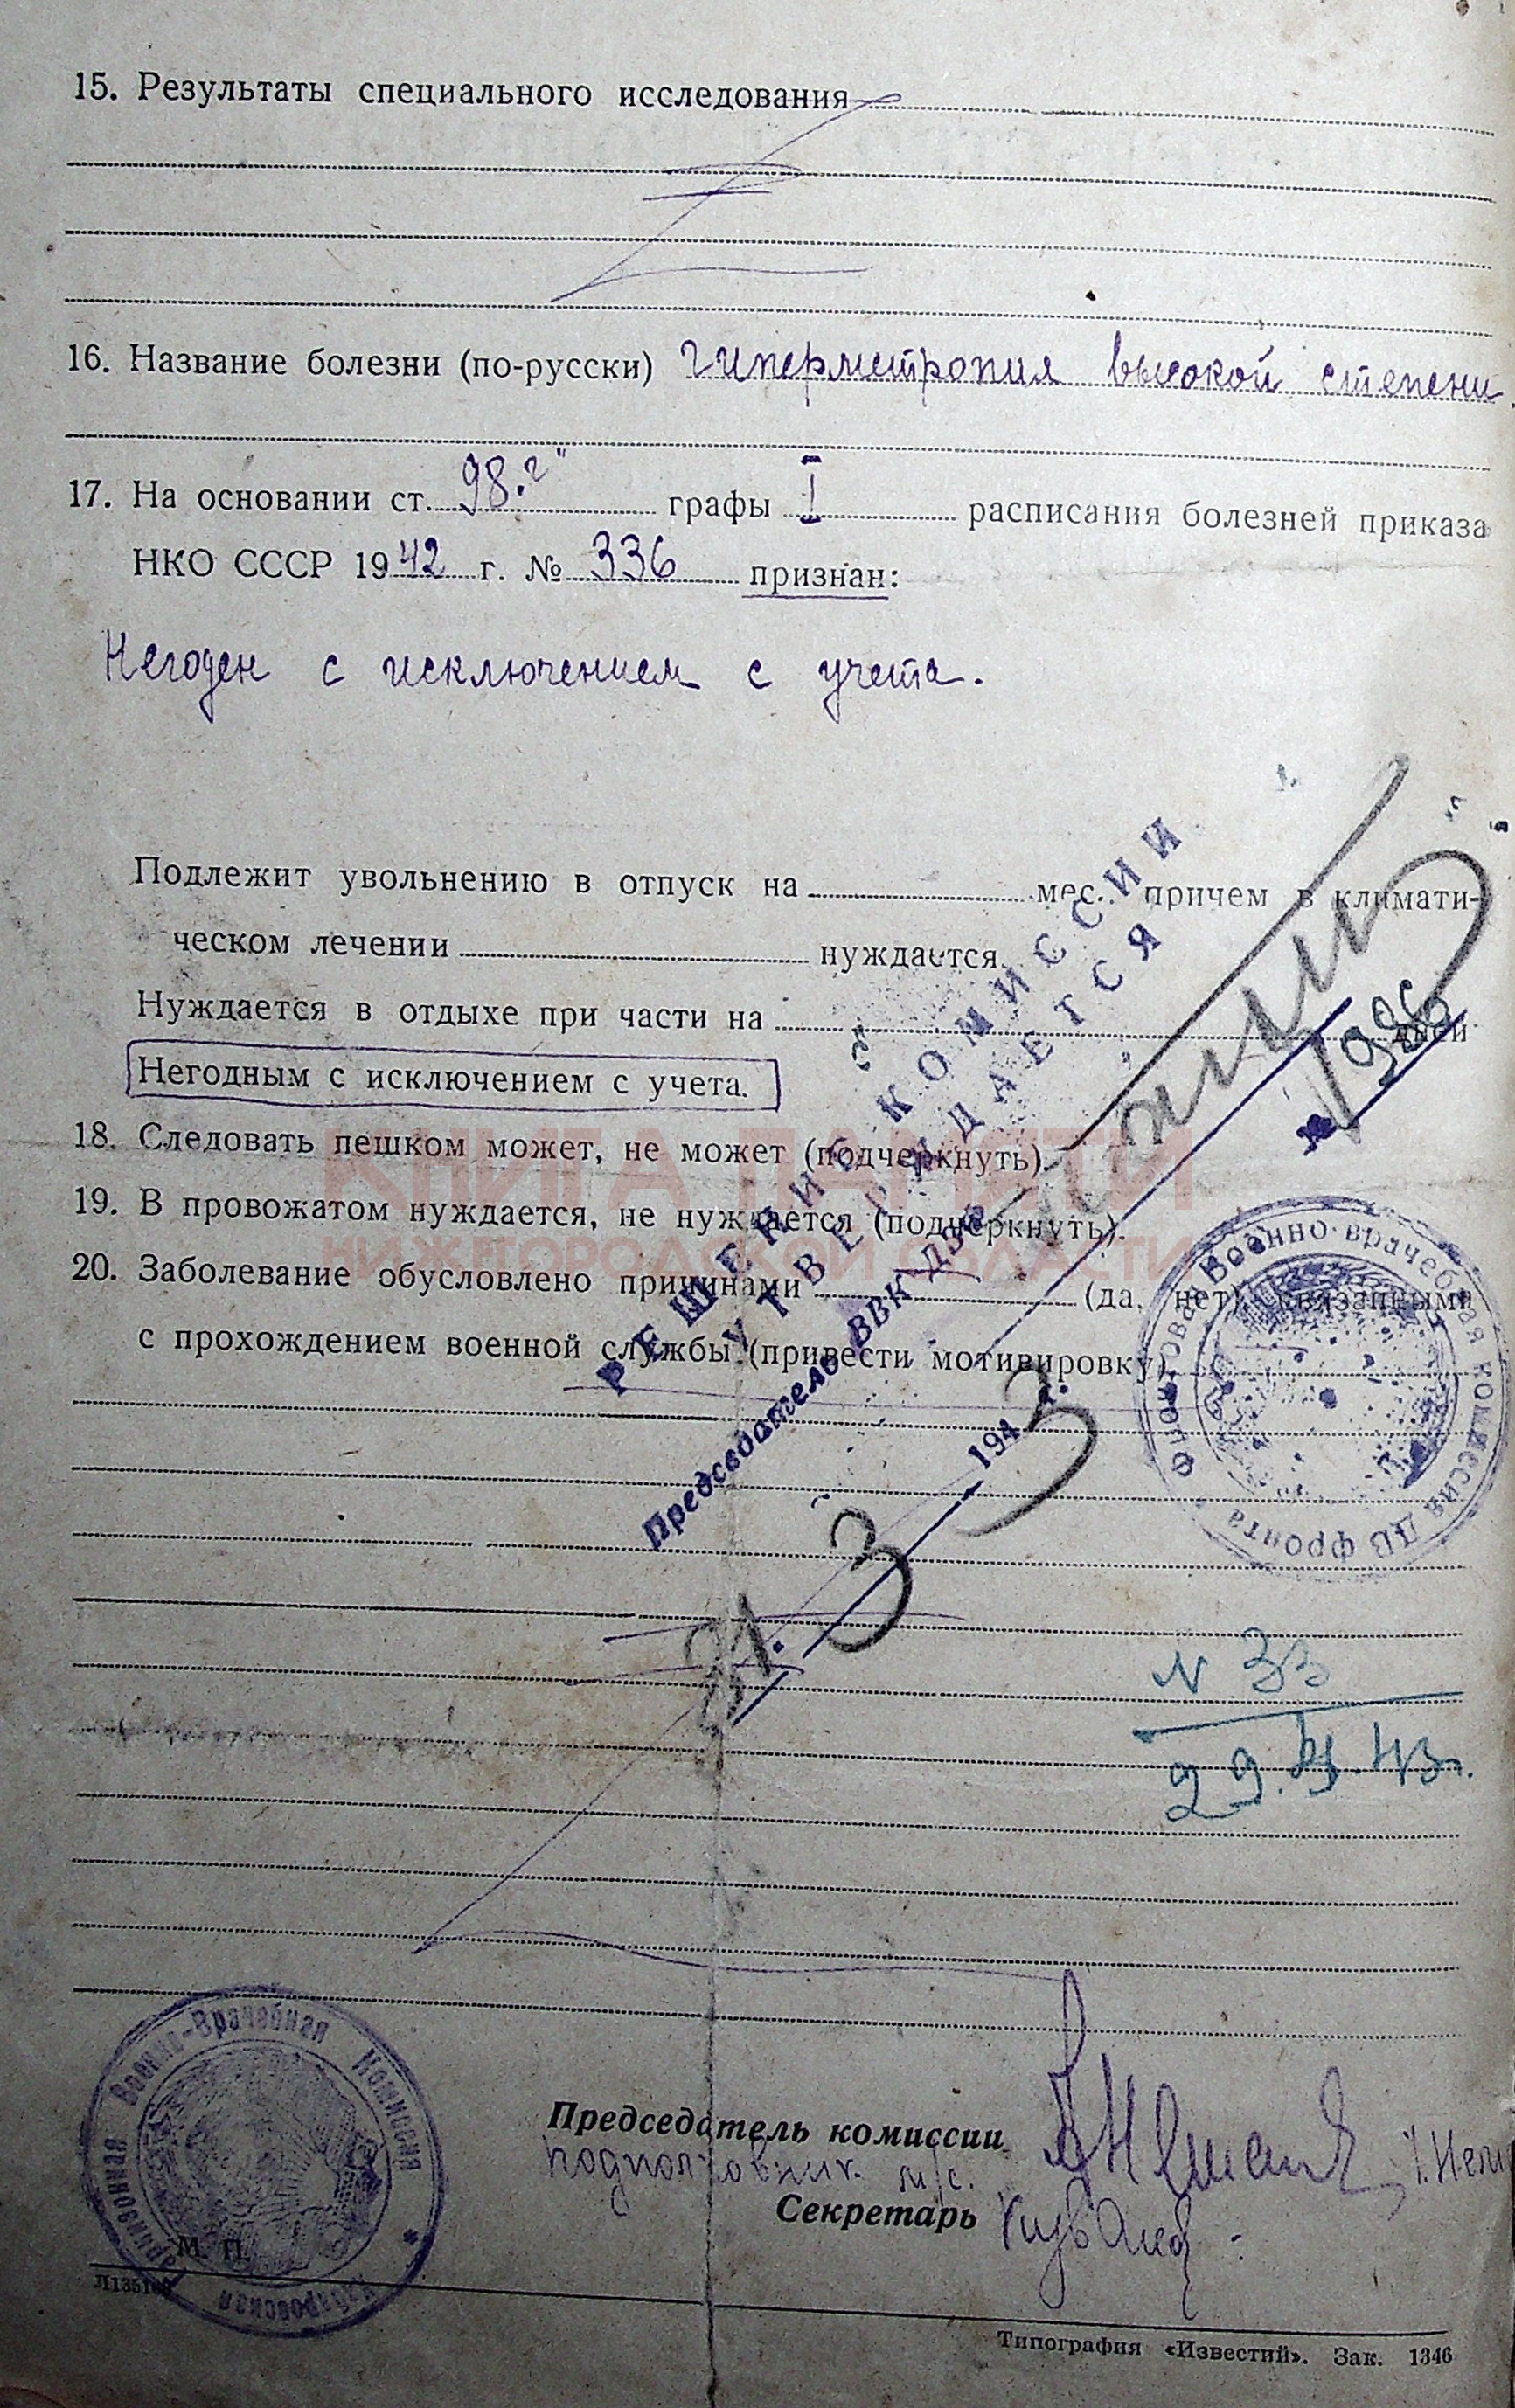 15. Результаты специального исследования
16. Название болезни (по-русски) гиперметропия высокой степени
17. На основании ст. 98 "г" графы I расписания болезней приказа
НКО СССР 1942 г. № 336 признан:
Негоден с исключением с учета.
Подлежит увольнению в отпуск на мес. причем в климати-
ческом лечении нуждается
Нуждается в отдыхе при части на дней
Негодным с исключением с учета.
18. Следовать пешком может, не может (подчеркнуть).
19. В провожатом нуждается, не нуждается (подчеркнуть).
20. Заболевание обусловлено причинами (да, нет), связанными
с прохождением военной службы (привести мотивировку)
РЕШЕНИЕ КОМИССИИ
УТВЕРЖДАЕТСЯ
Председатель ВВК ДВФ
31. 3 1943 г.
КНИГА ПАМЯТИ
НИЖЕГОРОДСКОЙ ОБЛАСТИ
Военно-врачебная комиссия ДВ фронта
N 33
Председатель комиссии
подполковник м/с.
Секретарь
Хабаровская Гарнизонная Военно-Врачебная Комиссия
М. П.
Типография «Известий». Зак. 1346